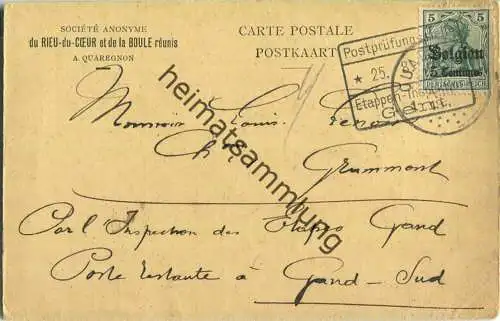 SOCIÉTÉ ANONYME
du RIEU-du-CŒUR et de la BOULE réunis
A QUAREGNON
CARTE POSTALE
POSTKAART
5 5
Belgien
5 Centimes
Postprüfung
* 25.
Etappen-Inspektion
Gent.
Monsieur Louis
Grammont
Par l'Inspection des Etapes Gand
Poste restante à Gand-Sud
heimatsammlung